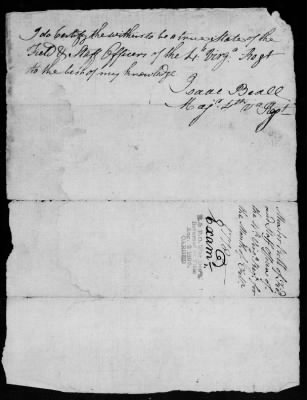 I do Certify the within to be a true State of the
Field & Staff Officers of the 4th Virgа Regt
to the best of my knowledge
Isaac Beall
Majr 4th Va Regt
Muster Roll of Field
and Staff Officers of
the 4th Virga Regt for
the Month of
Examd